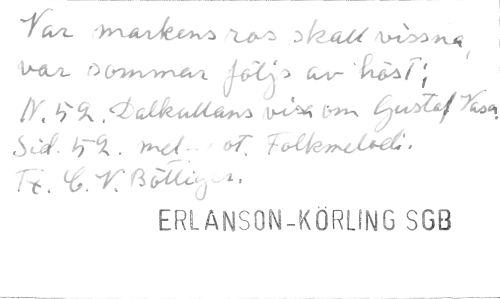 Var markens ros skall vissna,
var sommar följs av höst;
N. 52. Dalkullans visa om Gustaf Vasa.
Sid. 52. mel. ot. Folkmelodi.
Tx. C. V. Böttiger.
ERLANSON-KÖRLING SGB